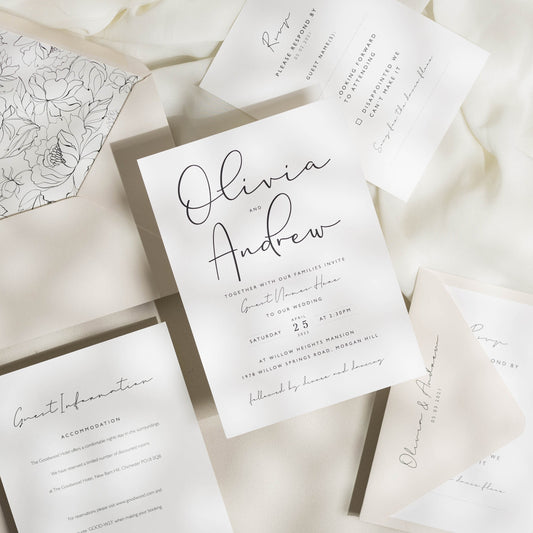 Rsvp
PLEASE RESPOND BY
GUEST NAME(S)
LOOKING FORWARD
TO ATTENDING
DISAPPOINTED WE
CAN'T MAKE IT
Song for the dance floor
Olivia
AND
Andrew
TOGETHER WITH OUR FAMILIES INVITE
Guest Names Here
TO OUR WEDDING
APRIL
SATURDAY 25 AT 2:30PM
2023
AT WILLOW HEIGHTS MANSION
1978 WILLOW SPRINGS ROAD, MORGAN HILL
followed by dinner and dancing
Guest Information
ACCOMMODATION
The Goodwood Hotel offers a comfortable nights stay in
We have reserved a limited number of discounted rooms
at The Goodwood Hotel, New Barn Hill, Chichester PO18 0QB
For reservations please visit www.goodwood.com and
GOOD-WAS7 when making your booking
Olivia & Andrew
Rsvp
PLEASE RESPOND BY